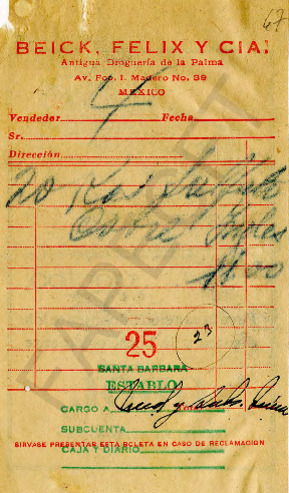 67
BEICK, FELIX Y CIA.
Antigua Droguería de la Palma
Av. Fco. I. Madero No. 39
MEXICO
Vendedor 4 Fecha
Sr.
Dirección
20 Ks. Sulfato
Cobre
11.00
25
23
SANTA BARBARA
ESTABLO
CARGO A
SUBCUENTA
SIRVASE PRESENTAR ESTA BOLETA EN CASO DE RECLAMACION
CAJA Y DIARIO